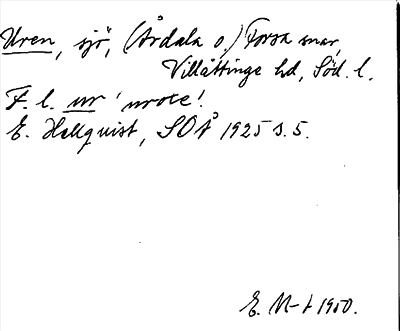 Uren, sjö, (Årdala o.) Forssa snar,
Villåttinge hd, Söd. l.
F. l. ur 'uroxe'.
E. Hellquist, SOÅ 1925 s. 5.
E. M-t 1950.